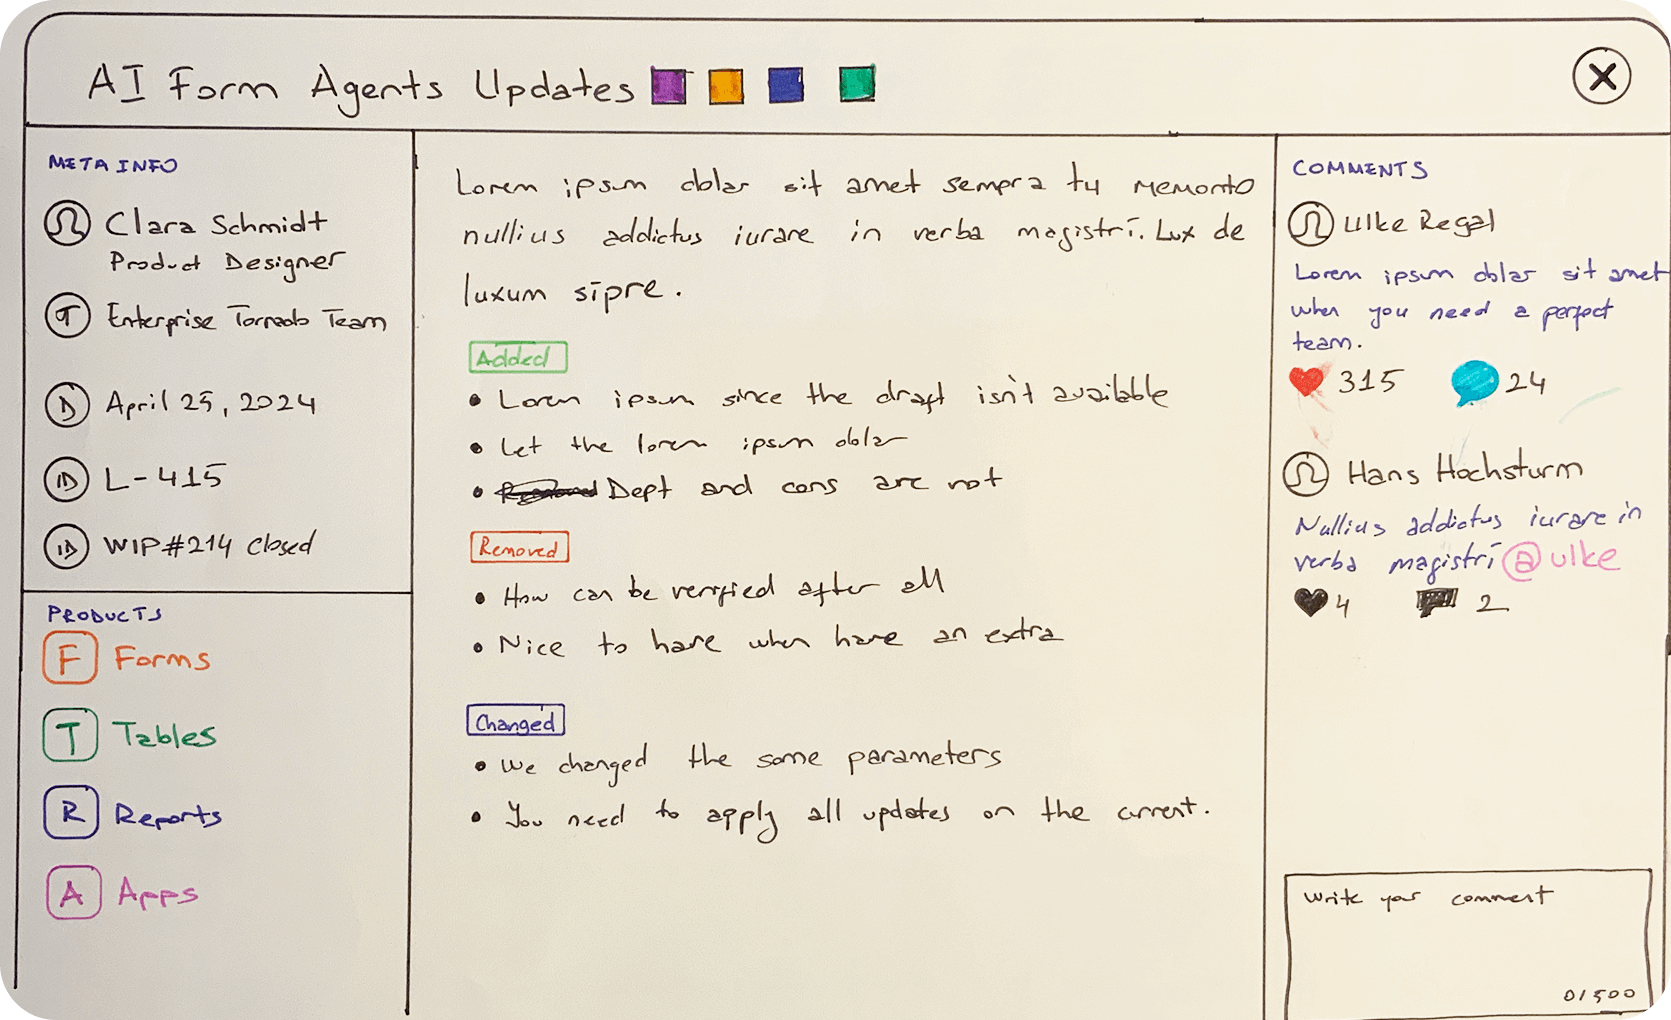 AI Form Agents Updates
META INFO
Clara Schmidt
Product Designer
T Enterprise Tornado Team
D April 25, 2024
ID L-415
ID WIP#214 Closed
PRODUCTS
F Forms
T Tables
R Reports
A Apps
Lorem ipsum dolar sit amet sempra tu memonto
nullius addictus iurare in verba magistri. Lux de
luxum sipre.
Added
• Lorem ipsum since the draft isn't available
• Let the lorem ipsum dolar
• Dept and cons are not
Removed
• How can be verified after all
• Nice to have when have an extra
Changed
• We changed the some parameters
• You need to apply all updates on the current.
COMMENTS
Ulke Regal
Lorem ipsum dolar sit amet
when you need a perfect
team.
315 24
Hans Hochsturm
Nullius addictus iurare in
verba magistri @ulke
4 2
Write your comment
0/500